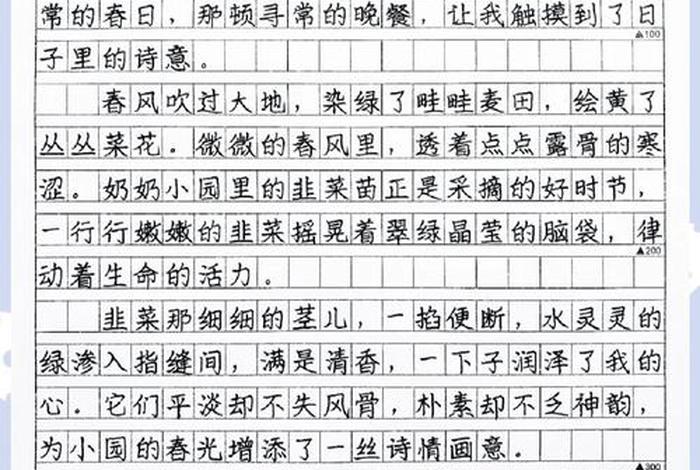 常的春日，那顿寻常的晚餐，让我触摸到了日
▲100
子里的诗意。
春风吹过大地，染绿了畦畦麦田，绘黄了
丛丛菜花。微微的春风里，透着点点露骨的寒
涩。奶奶小园里的韭菜苗正是采摘的好时节，
一行行嫩嫩的韭菜摇晃着翠绿晶莹的脑袋，律
▲200
动着生命的活力。
韭菜那细细的茎儿，一掐便断，水灵灵的
绿渗入指缝间，满是清香，一下子润泽了我的
心。它们平淡却不失风骨，朴素却不乏神韵，
为小园的春光增添了一丝诗情画意。
▲300